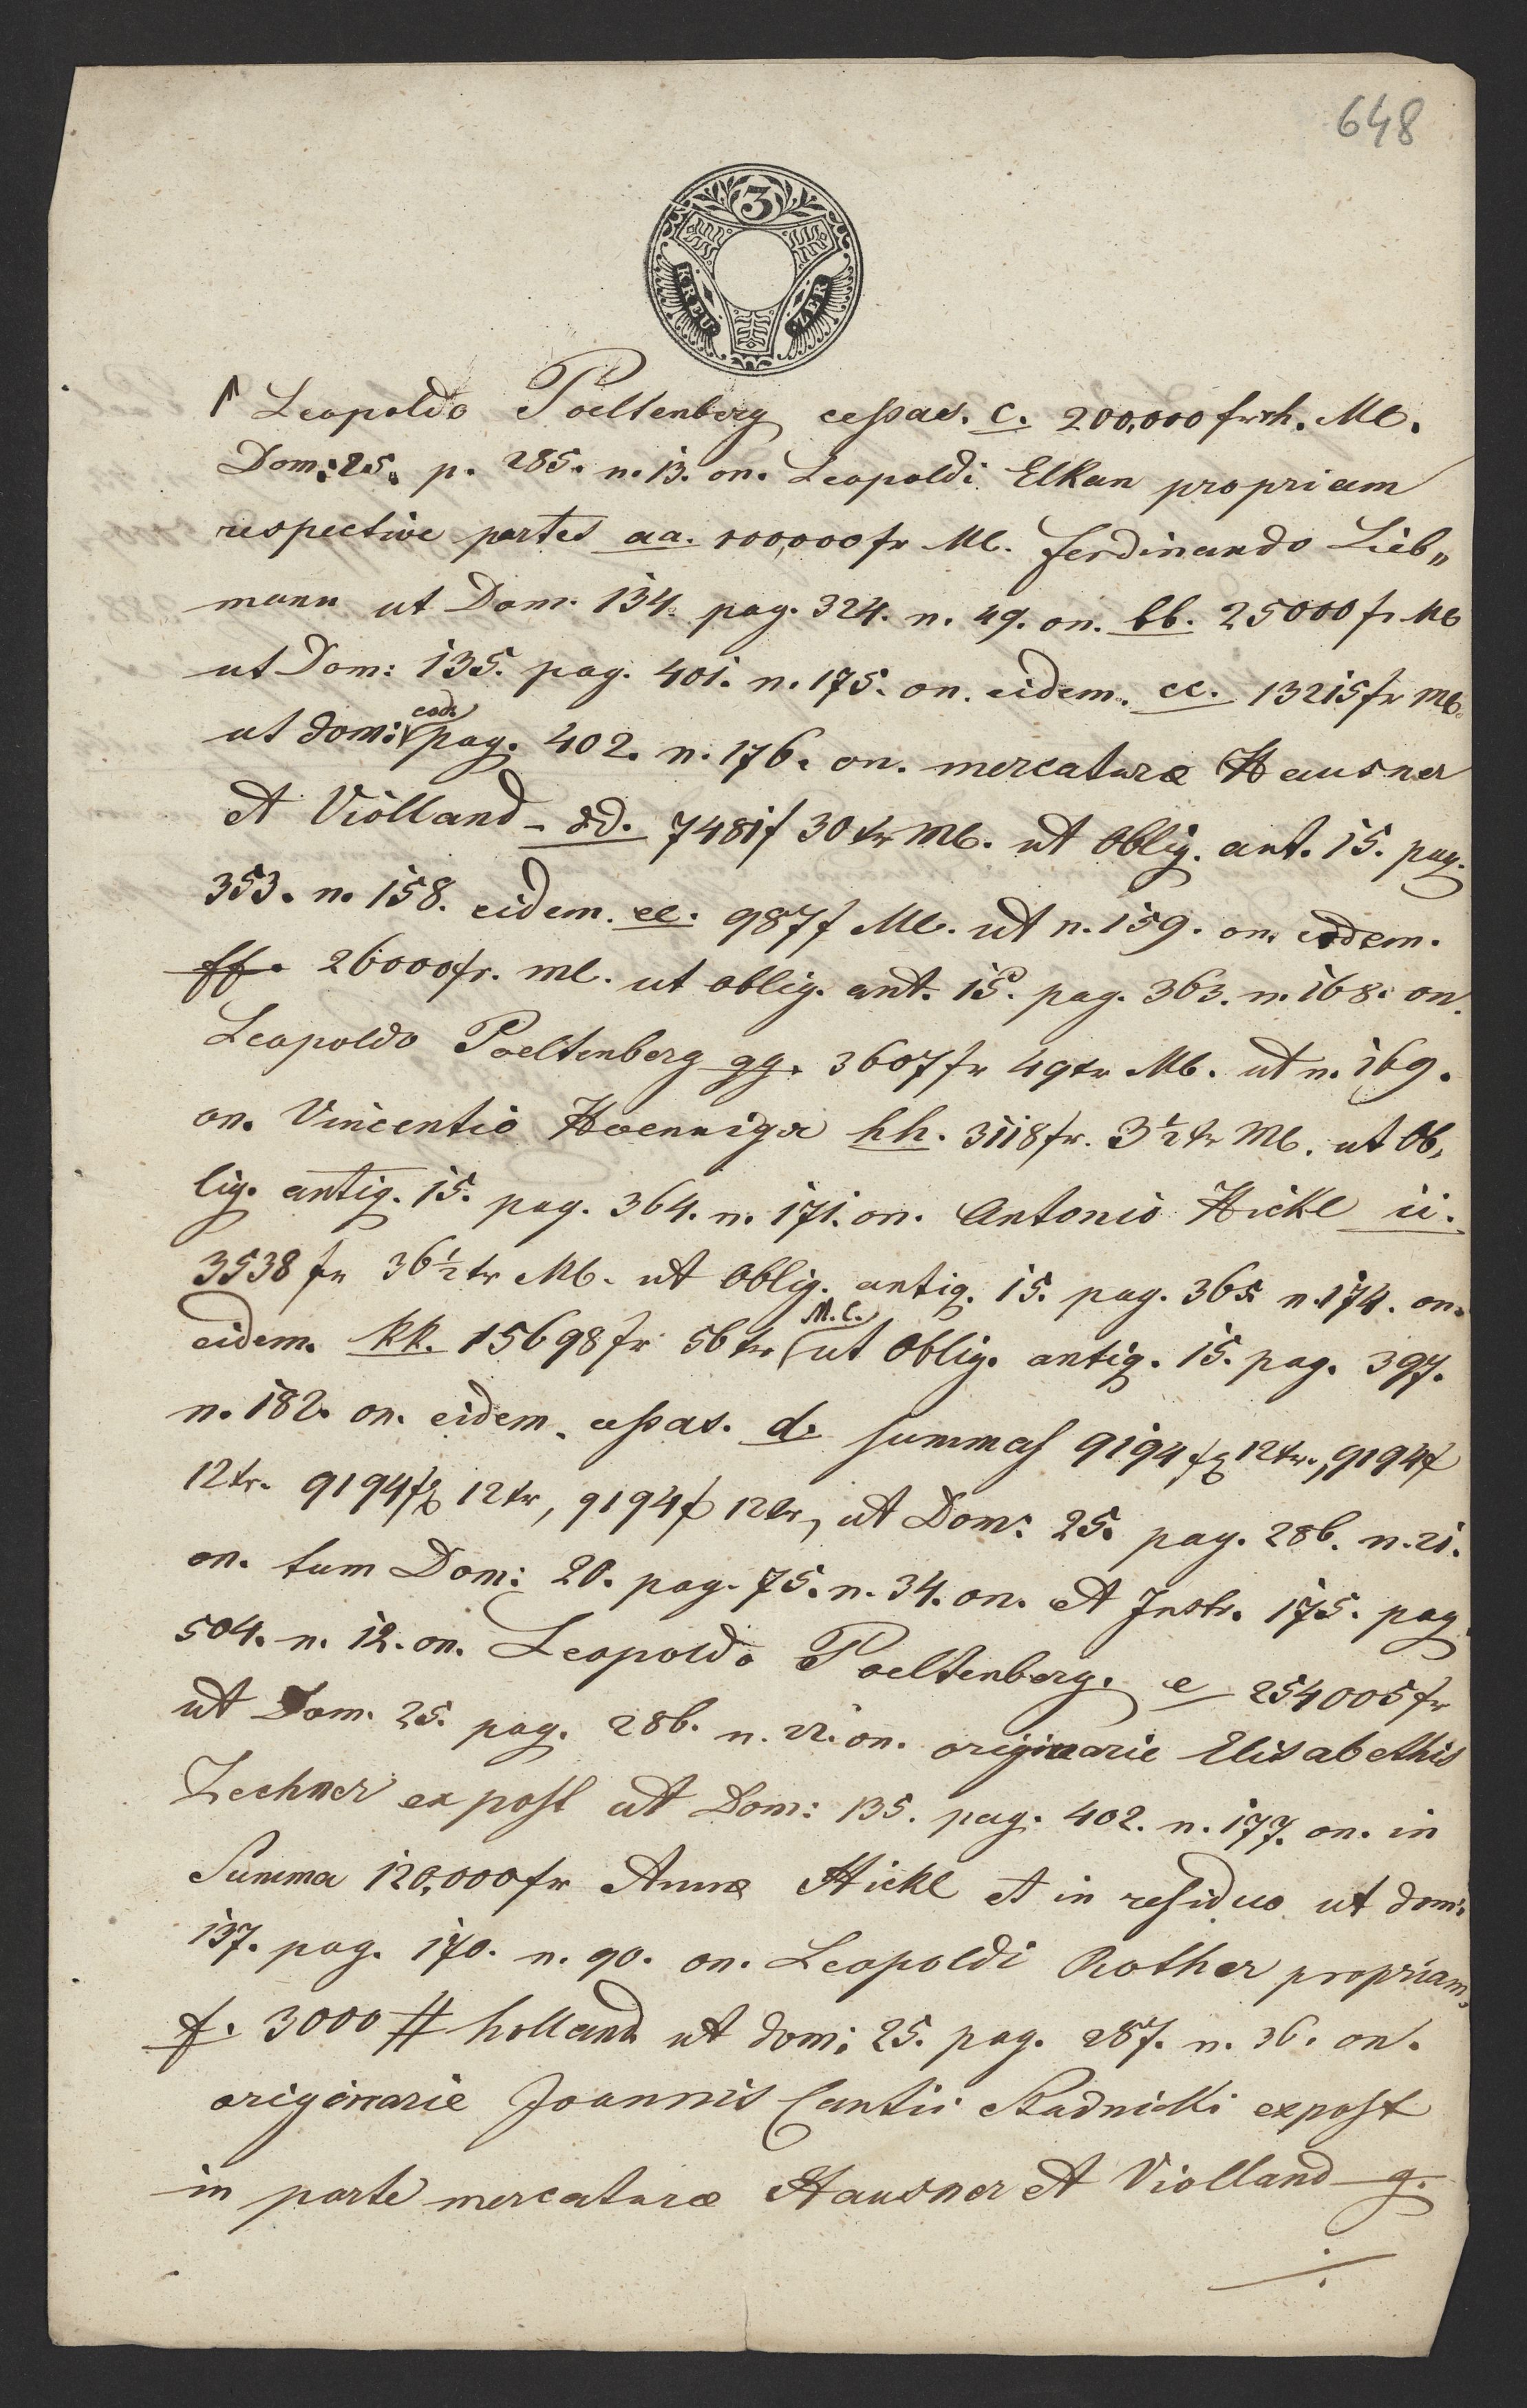 648
3
KREU ZER
Leopoldo Poeltenberg cessae. c. 200,000 frrh. MC.
Dom: 25. p. 285. n. 13. on. Leopoldi Elkan propriam
respective partes aa. 100,000 fr MC. Ferdinando Lieb„
mann ut Dom. 134. pag. 324. n. 49. on. bb. 25000 fr. MC
ut Dom: 135. pag. 401. n. 175. on. eidem. cc. 13215 fr MC.
eod.
ut dom: pag. 402. n. 176. on. mercaturæ Hausner
et Violland - dd. 7481 f 30 xr MC. ut Oblig. ant. 15. pag.
353. n. 158. eidem. ee. 987 f MC. ut n. 159. on. eidem.
ff. 26000 fr. MC. ut oblig. ant. 15. pag. 363. n. 168. on.
Leopoldo Poeltenberg gg. 3607 fr 49 xr MC. ut n. 169.
on. Vincentio Hoenniga hh. 3118 fr. 3½ xr MC. ut Ob,
lig. antiq. 15. pag. 364. n. 171. on. Antonio Hickl ii.
3538 fr 36½ xr MC. ut Oblig. antiq. 15. pag. 365. n. 174. on.
M.C.
eidem. kk. 15698 fr 56 xr ut Oblig. antiq. 15. pag. 397.
n. 182. on. eidem. cessas. d. summas 9194 f 12 xr., 9194 f
12 xr. 9194 f 12 xr, 9194 f 12 xr, ut Dom: 25. pag. 286. n. 21.
on. tum Dom: 20. pag. 75. n. 34. on. et Instr. 175. pag.
504. n. 12. on. Leopoldo Poeltenberg. e 254005 fr
ut Dom. 25. pag. 286. n. 22. on. originarie Elisabethis
Zechner ex post ut Dom: 135. pag. 402. n. 177. on. in
Summa 120,000 fr Annæ Hickl et in residuo ut dom:
137. pag. 170. n. 90. on. Leopoldi Rother propriam,
f. 3000 # holland ut dom: 25. pag. 287. n. 36. on.
originarie Joannis Cantii Stadnicki expost
in parte mercaturæ Hausner et Violland g.
./.